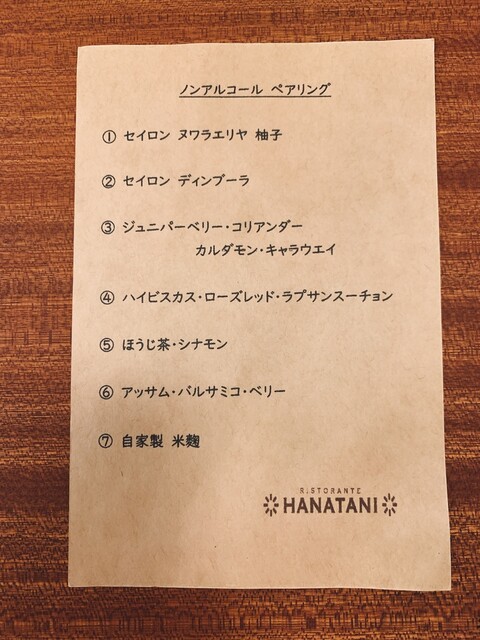 ノンアルコール ペアリング
① セイロン ヌワラエリヤ 柚子
② セイロン ディンブーラ
③ ジュニパーベリー・コリアンダー
カルダモン・キャラウエイ
④ ハイビスカス・ローズレッド・ラプサンスーチョン
⑤ ほうじ茶・シナモン
⑥ アッサム・バルサミコ・ベリー
⑦ 自家製 米麴
RISTORANTE
HANATANI